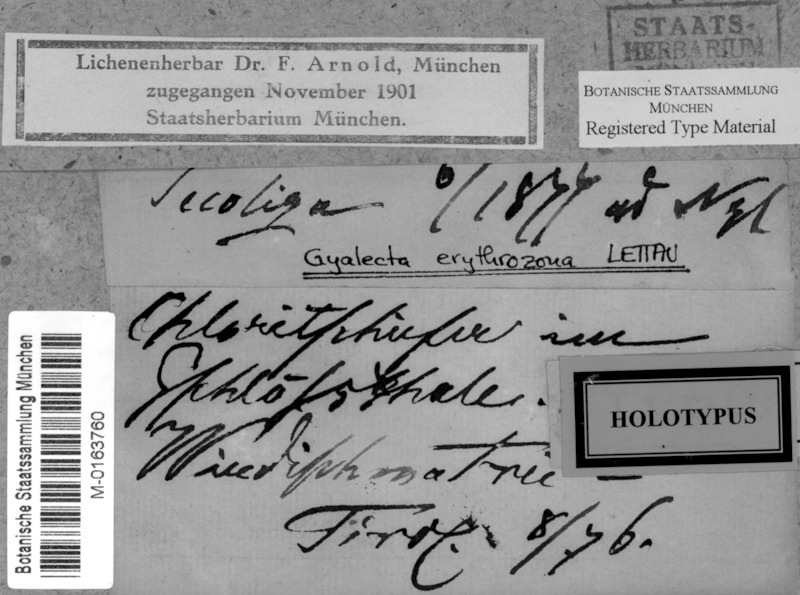 STAATS-
HERBARIUM
MÜNCHEN
Lichenenherbar Dr. F. Arnold, München
zugegangen November 1901
Staatsherbarium München.
BOTANISCHE STAATSSAMMLUNG
MÜNCHEN
Registered Type Material
Secoliga 6/1877 ad Nyl
Gyalecta erythrozona LETTAU
Chloritschiefer im
Schlößthale.
Windischmatrei
Tirol. 8/76.
HOLOTYPUS
Botanische Staatssammlung München
M-0163760